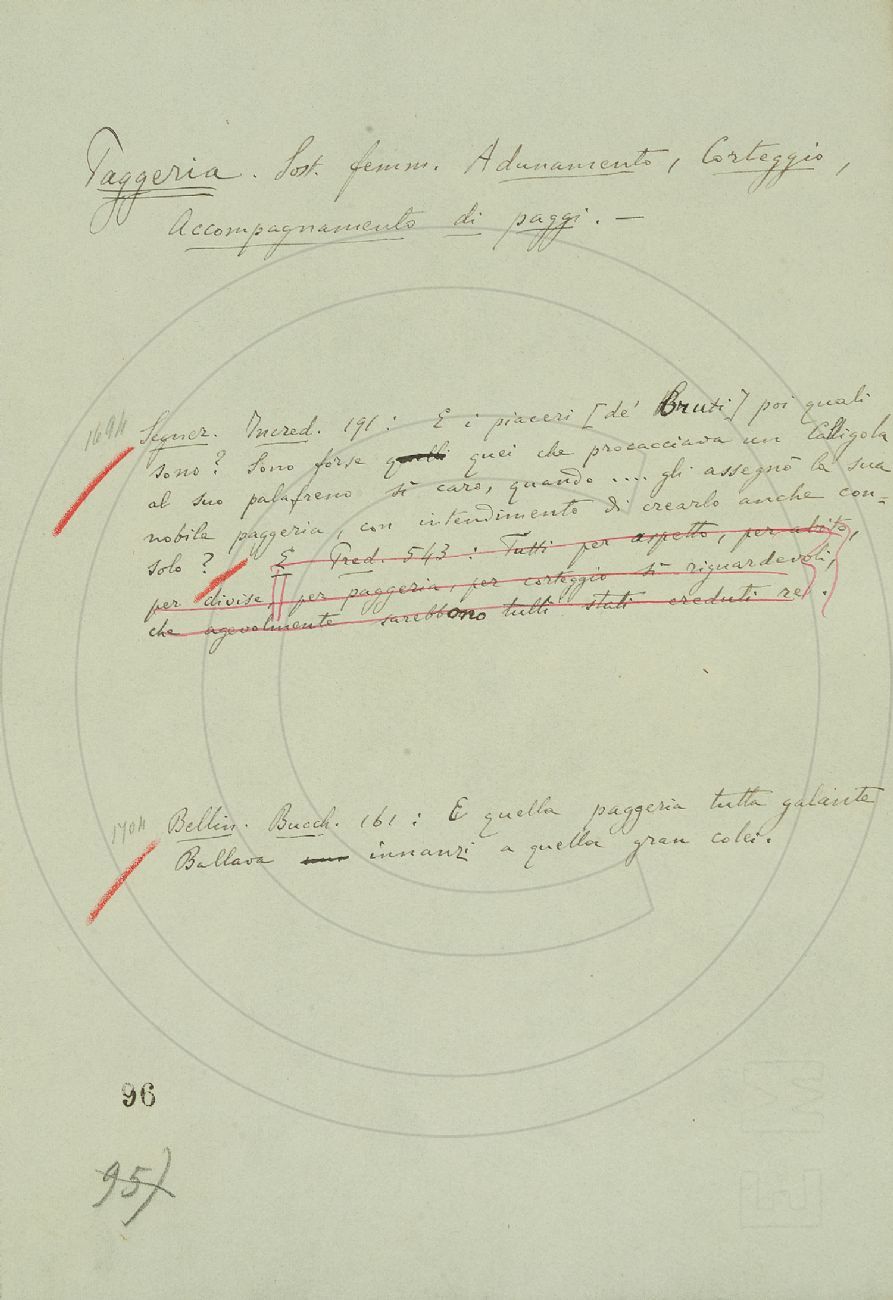 Paggeria. Sost. femm. Adunamento, Corteggio,
Accompagnamento di paggi. —
1694
Segner. Incred. 191: E i piaceri [de' Bruti] poi quali
sono? Sono forse quelli quei che procacciava un Calligola
al suo palafreno sì caro, quando .... gli assegnò la sua
nobile paggeria, con intendimento di crearlo anche con=
solo? E Pred. 543: Tutti per aspetto, per abito,
per divise, per paggeria, per corteggio sì riguardevoli,
che agevolmente sarebbono tutti stati creduti re.
1704
Bellin. Bucch. 161: E quella paggeria tutta galante
Ballava innanzi a quella gran colei.
96
95)